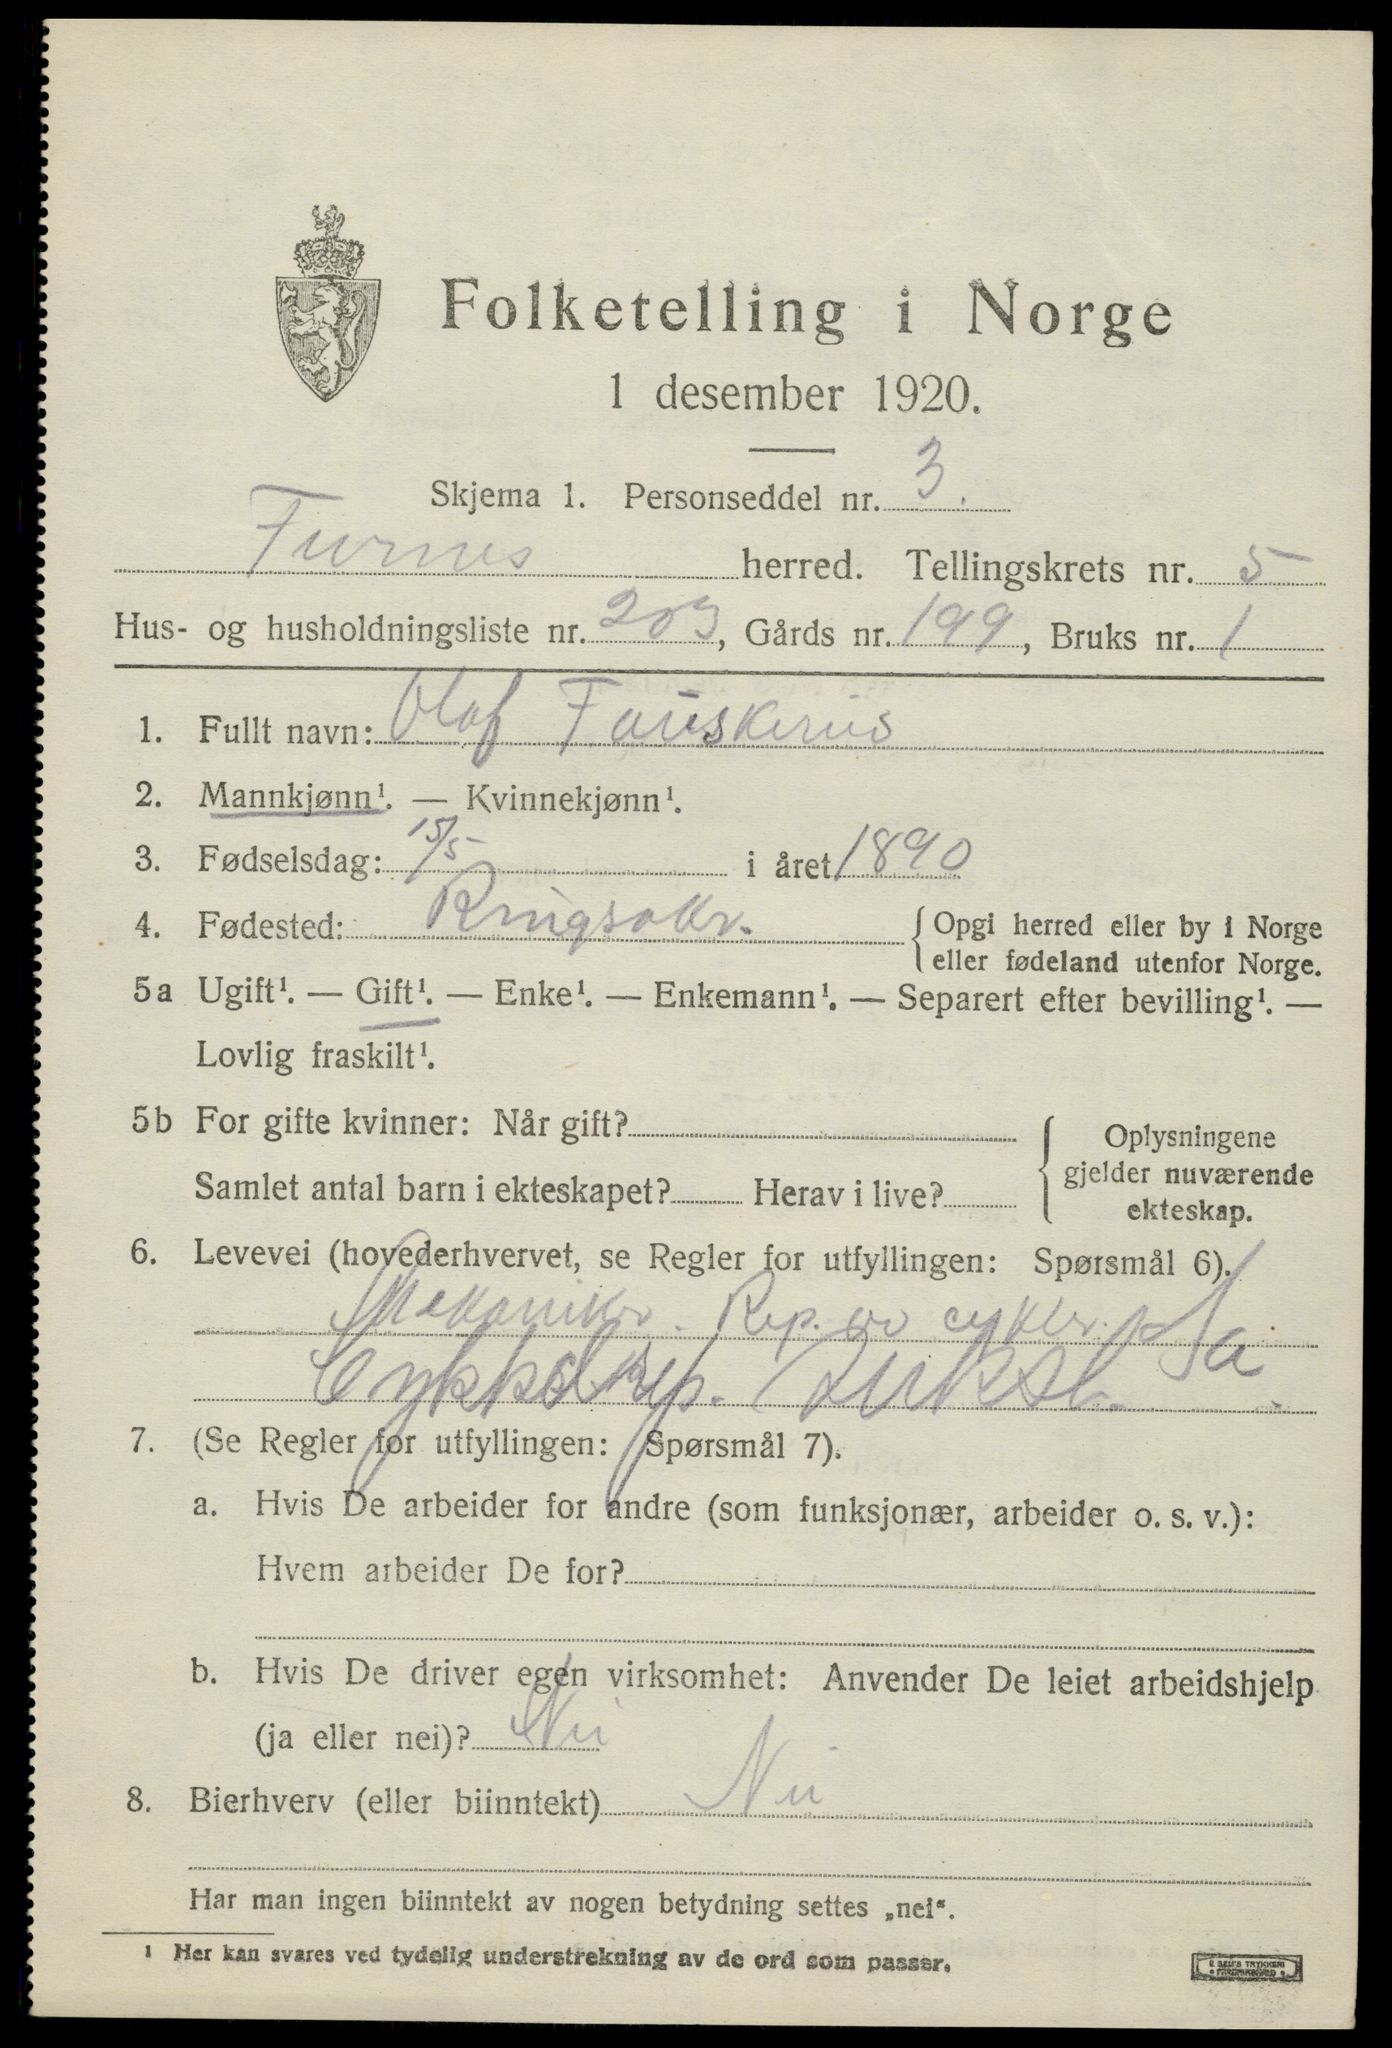 Folketelling i Norge
1 desember 1920.
Skjema 1. Personseddel nr. 3.
Furnes herred. Tellingskrets nr. 5
Hus- og husholdningsliste nr. 203, Gårds nr. 199, Bruks nr. 1
1. Fullt navn: Olaf Fauskerud
2. Mannkjønn¹. — Kvinnekjønn¹.
3. Fødselsdag: 15/5 i året 1890
4. Fødested: Ringsaker.
{ Opgi herred eller by i Norge
eller fødeland utenfor Norge.
5a Ugift¹. — Gift¹. — Enke¹. — Enkemann¹. — Separert efter bevilling¹. —
Lovlig fraskilt¹.
5b For gifte kvinner: Når gift?
Samlet antal barn i ekteskapet? Herav i live?
{ Oplysningene
gjelder nuværende
ekteskap.
6. Levevei (hovederhvervet, se Regler for utfyllingen: Spørsmål 6).
Mekaniker. Rep. av cykler.
Cykkelrep.
7. (Se Regler for utfyllingen: Spørsmål 7).
a. Hvis De arbeider for andre (som funksjonær, arbeider o. s. v.):
Hvem arbeider De for?
b. Hvis De driver egen virksomhet: Anvender De leiet arbeidshjelp
(ja eller nei)? Nei
8. Bierhverv (eller biinntekt) Nei
Har man ingen biinntekt av nogen betydning settes „nei“.
¹ Her kan svares ved tydelig understrekning av de ord som passer.